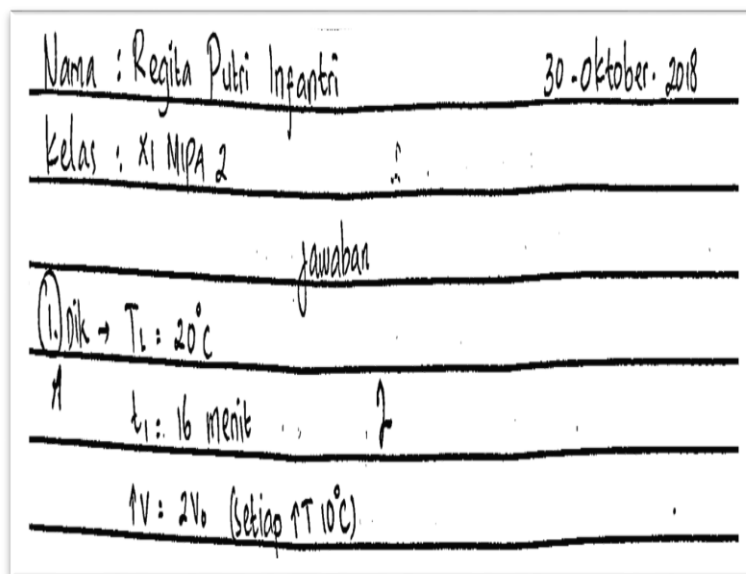 Nama : Regita Putri Infantri 30-Oktober-2018
Kelas : XI MIPA 2
Jawaban
1. Dik → T1 : 20°C
A t1 : 16 menit 2
↑V : 2V0 (setiap ↑T 10°C)